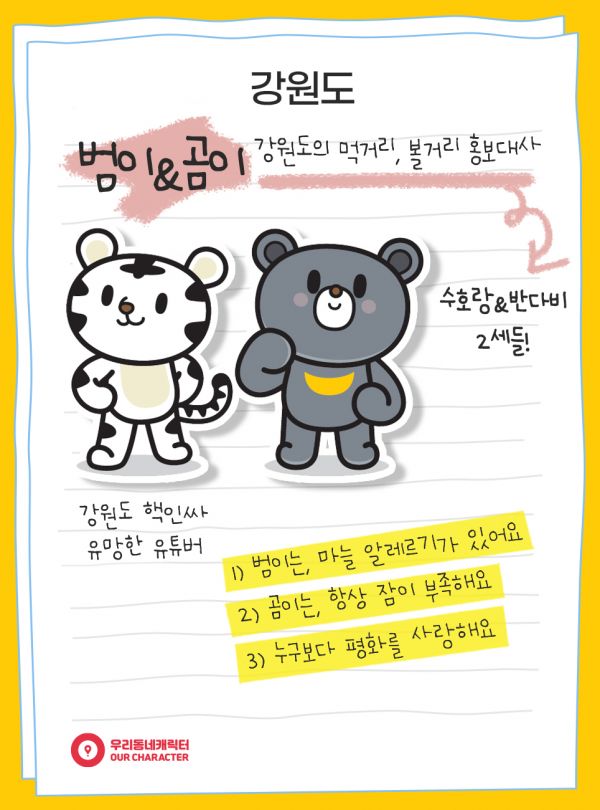 강원도
범이&곰이
강원도의 먹거리, 볼거리 홍보대사
수호랑&반다비
2세들!
강원도 핵인싸
유망한 유튜버
1) 범이는, 마늘 알레르기가 있어요
2) 곰이는, 항상 잠이 부족해요
3) 누구보다 평화를 사랑해요
우리동네캐릭터
OUR CHARACTER